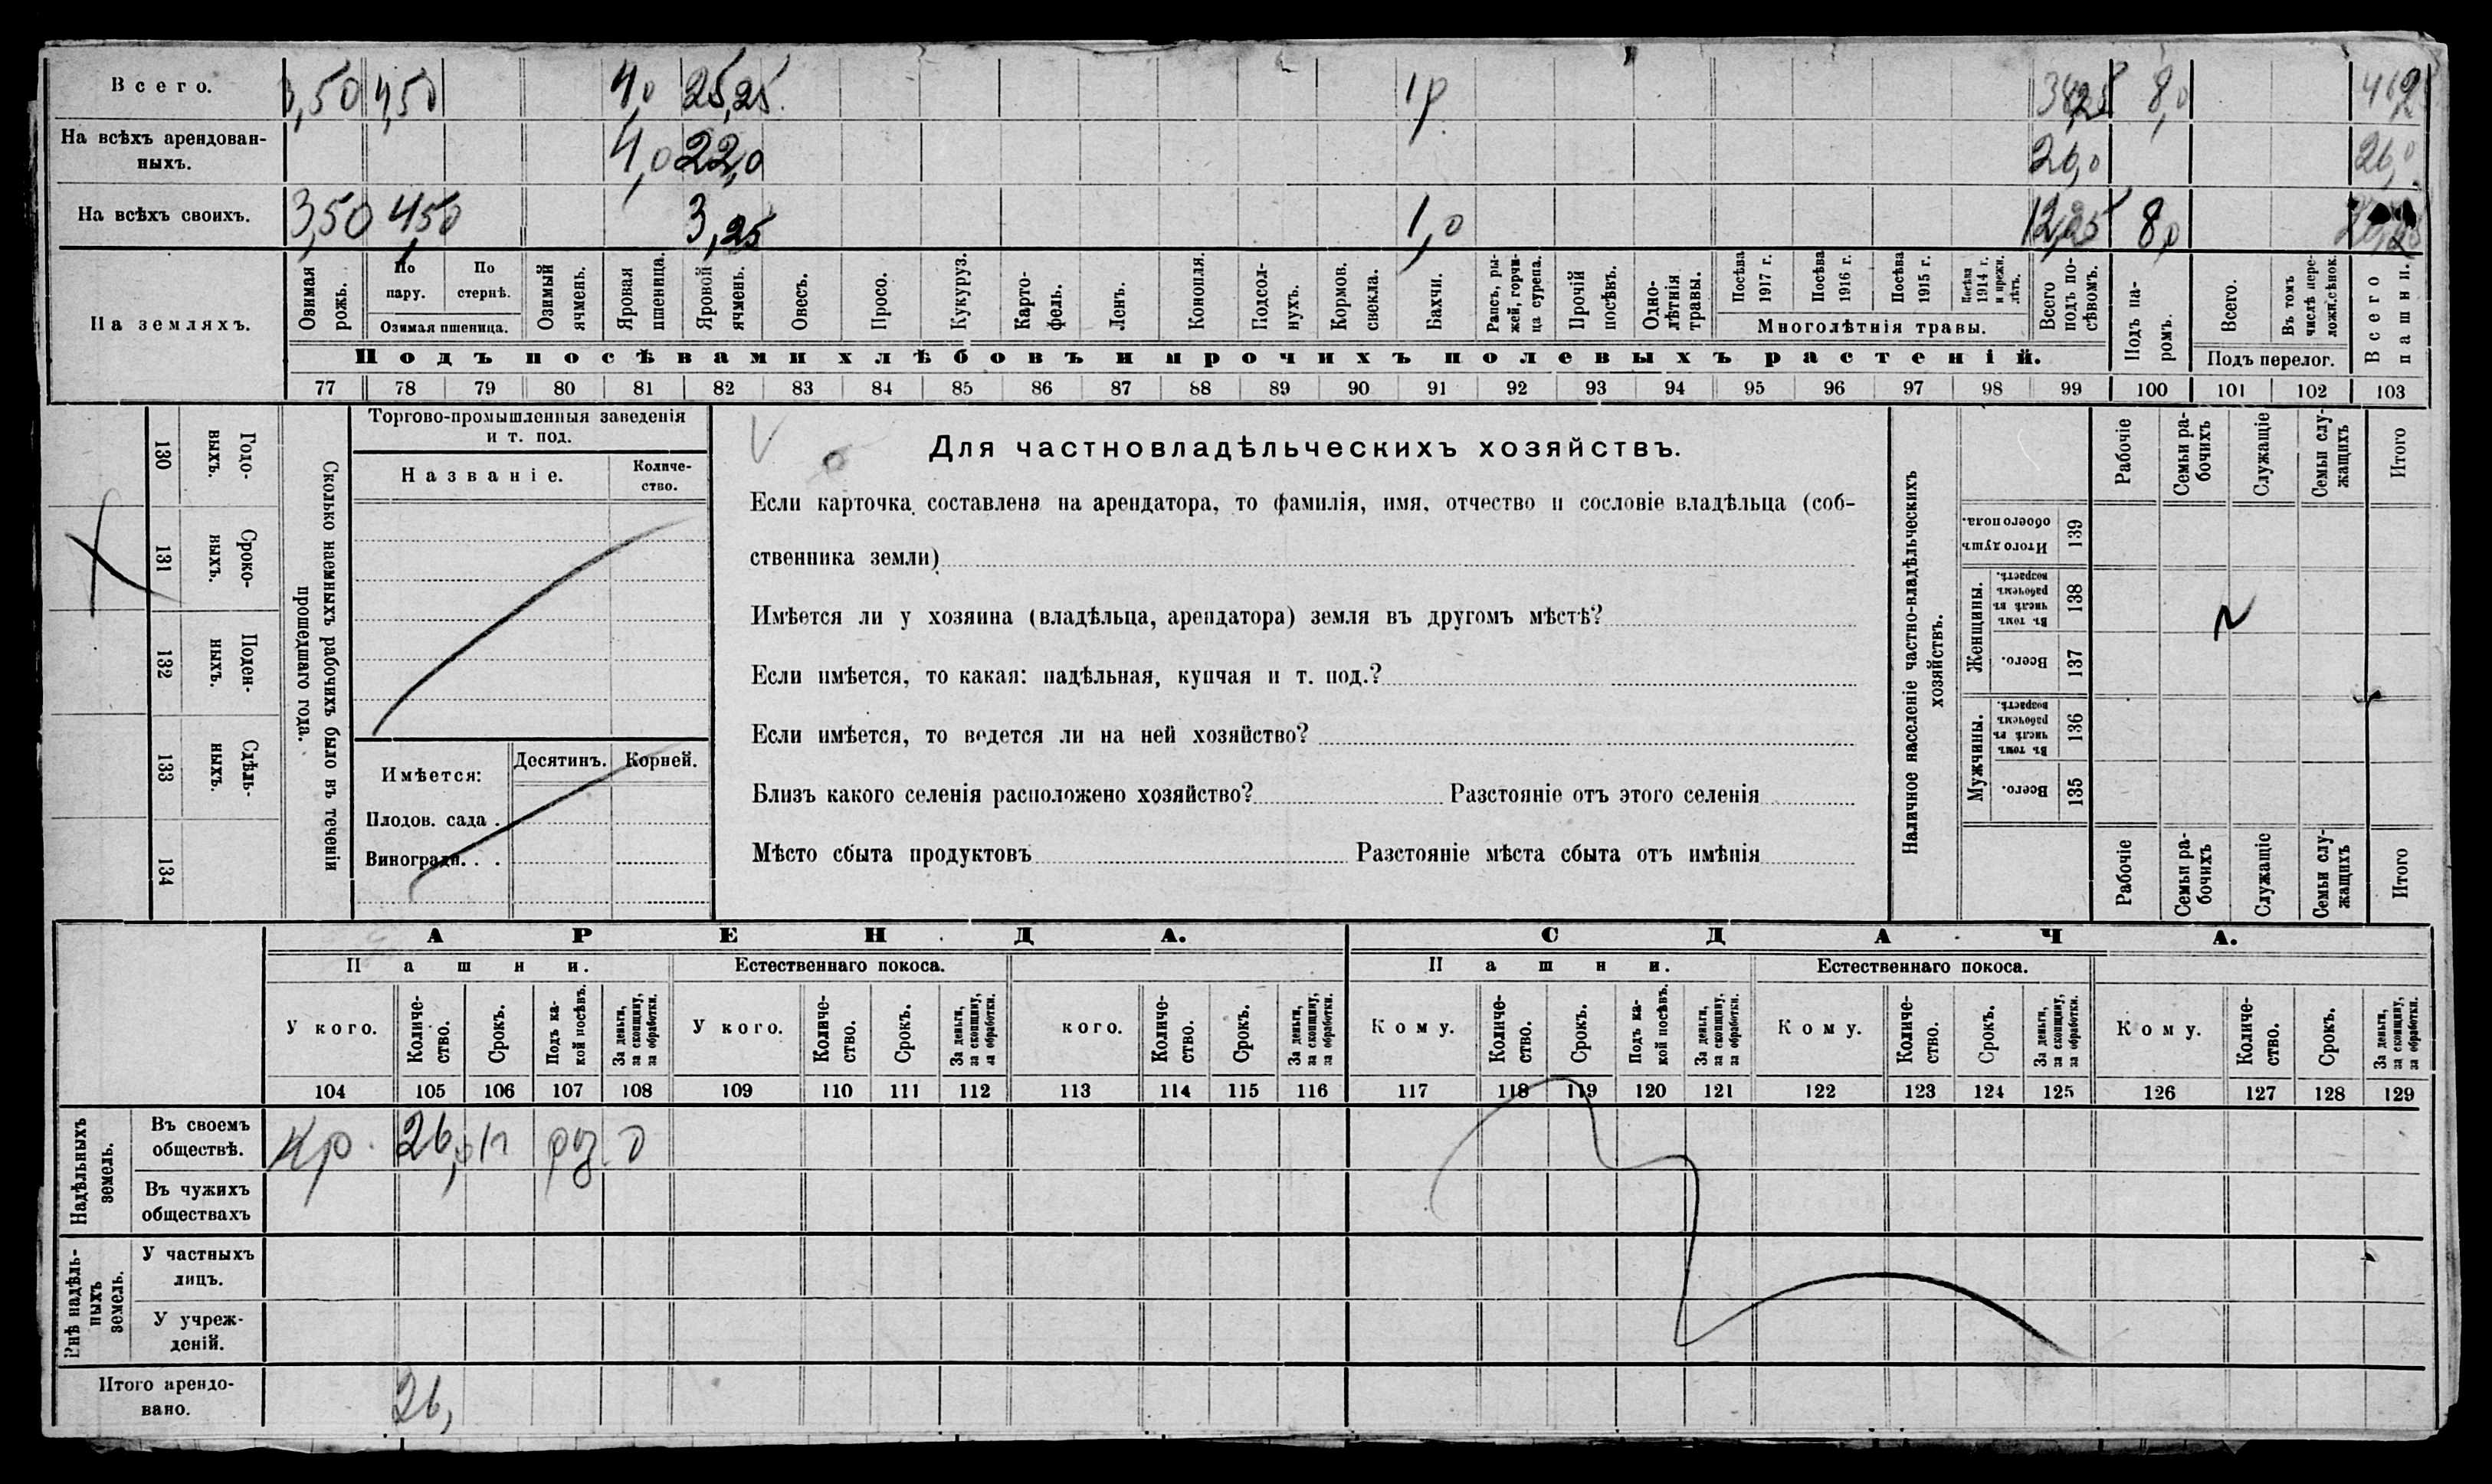 Всего. 3,50 4,50 4,0 25,25 1,0 8,0
На всѣхъ арендован-
ныхъ. 4,0 22,0 26,0 26,0
На всѣхъ своихъ. 3,50 4,50 3,25 1,0 12,25 8,0
На земляхъ.
Озимая рожь.
По пару.
По стернѣ.
Озимая пшеница.
Озимый ячмень.
Яровая пшеница.
Яровой ячмень.
Овесъ.
Просо.
Кукуруз.
Карто-
фель.
Ленъ.
Конопля.
Подсол-
нухъ.
Кормов.
свекла.
Бахчи.
Рапсъ, ры-
жей, горчи-
ца сурепа.
Прочій
посѣвъ.
Одно-
лѣтнія
травы.
Посѣва
1917 г.
Посѣва
1916 г.
Посѣва
1915 г.
Посѣва
1914 г.
и прежн.
лѣтъ.
Многолѣтнія травы.
Всего
подъ по-
сѣвомъ.
Подъ па-
ромъ.
Всего.
Въ томъ
числѣ пере-
ложн.сѣнок.
Подъ перелог.
Всего
пашни.
Подъ посѣвами хлѣбовъ и прочихъ полевыхъ растеній.
77 78 79 80 81 82 83 84 85 86 87 88 89 90 91 92 93 94 95 96 97 98 99 100 101 102 103
Сколько наемныхъ рабочихъ было въ теченіи
прошедшаго года.
Годо-
выхъ.
130
Сроко-
ныхъ.
131
Поден-
ныхъ.
132
Сдѣль-
ныхъ.
133
134
Торгово-промышленныя заведенія
и т. под.
Названіе.
Количе-
ство.
Имѣется:
Десятинъ. Корней.
Плодов. сада .
Виноградн. . .
Для частновладѣльческихъ хозяйствъ.
Если карточка составлена на арендатора, то фамилія, имя, отчество и сословіе владѣльца (соб-
ственника земли)
Имѣется ли у хозяина (владѣльца, арендатора) земля въ другомъ мѣстѣ?
Если имѣется, то какая: надѣльная, купчая и т. под.?
Если имѣется, то ведется ли на ней хозяйство?
Близъ какого селенія расположено хозяйство? Разстояніе отъ этого селенія
Мѣсто сбыта продуктовъ Разстояніе мѣста сбыта отъ имѣнія
Наличное населеніе частно-владѣльческихъ
хозяйствъ.
Рабочіе
Семьи ра-
бочихъ
Служащіе
Семьи слу-
жащихъ
Итого
Итого душъ
обоего пола.
139
Женщины.
Въ томъ
числѣ въ
рабочемъ
возрастѣ.
138
Всего.
137
Мужчины.
Въ томъ
числѣ въ
рабочемъ
возрастѣ.
136
Всего.
135
Рабочіе
Семьи ра-
бочихъ
Служащіе
Семьи слу-
жащихъ
Итого
АРЕНДА. СДАЧА.
Пашни. Естественнаго покоса. Пашни. Естественнаго покоса.
У кого.
Количе-
ство.
Срокъ.
Подъ ка-
кой посѣвъ.
За деньги,
за скопщину,
за обработки.
У кого.
Количе-
ство.
Срокъ.
За деньги,
за скопщину,
за обработки.
кого.
Количе-
ство.
Срокъ.
За деньги,
за скопщину,
за обработки.
Кому.
Количе-
ство.
Срокъ.
Подъ ка-
кой посѣвъ.
За деньги,
за скопщину,
за обработки.
Кому.
Количе-
ство.
Срокъ.
За деньги,
за скопщину,
за обработки.
Кому.
Количе-
ство.
Срокъ.
За деньги,
за скопщину,
за обработки.
104 105 106 107 108 109 110 111 112 113 114 115 116 117 118 119 120 121 122 123 124 125 126 127 128 129
Надѣльныхъ
земель.
Въ своемъ
обществѣ. Кр. 26,0
Въ чужихъ
обществахъ
Внѣ надѣль-
ныхъ
земель.
У частныхъ
лицъ.
У учреж-
деній.
Итого арендо-
вано. 26,